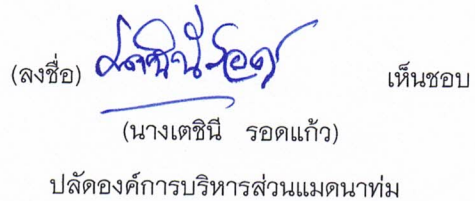 (ลงชื่อ) เห็นชอบ
(นางเตชินี รอดแก้ว)
ปลัดองค์การบริหารส่วนแมดนาท่ม